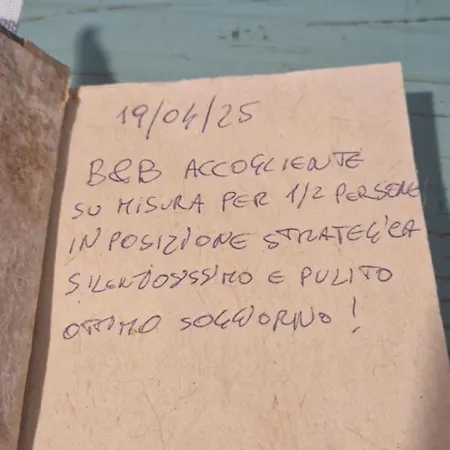 19/04/25
B&B ACCOGLIENTE
SU MISURA PER 1/2 PERSONE
IN POSIZIONE STRATEGICA
SILENZIOSISSIMO E PULITO
OTTIMO SOGGIORNO!